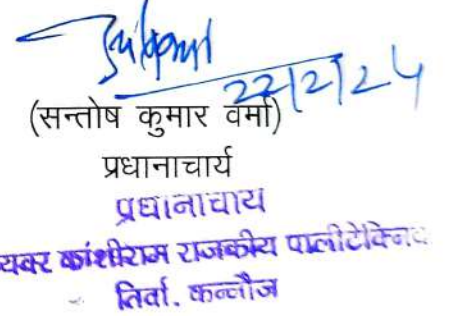 22/2/24
(सन्तोष कुमार वर्मा)
प्रधानाचार्य
प्रधानाचाय
यवर कांशीराम राजकीय पालीटेक्निक
तिर्वा. कन्नौज